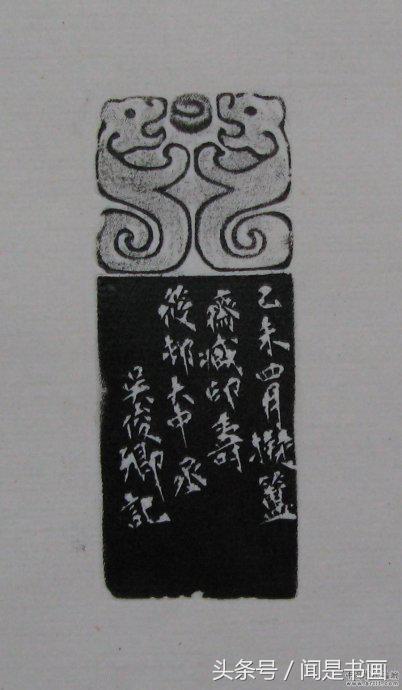 乙未四月擬簠
齋臧印壽
後邨大中丞
吳俊卿記
头条号 / 闻是书画